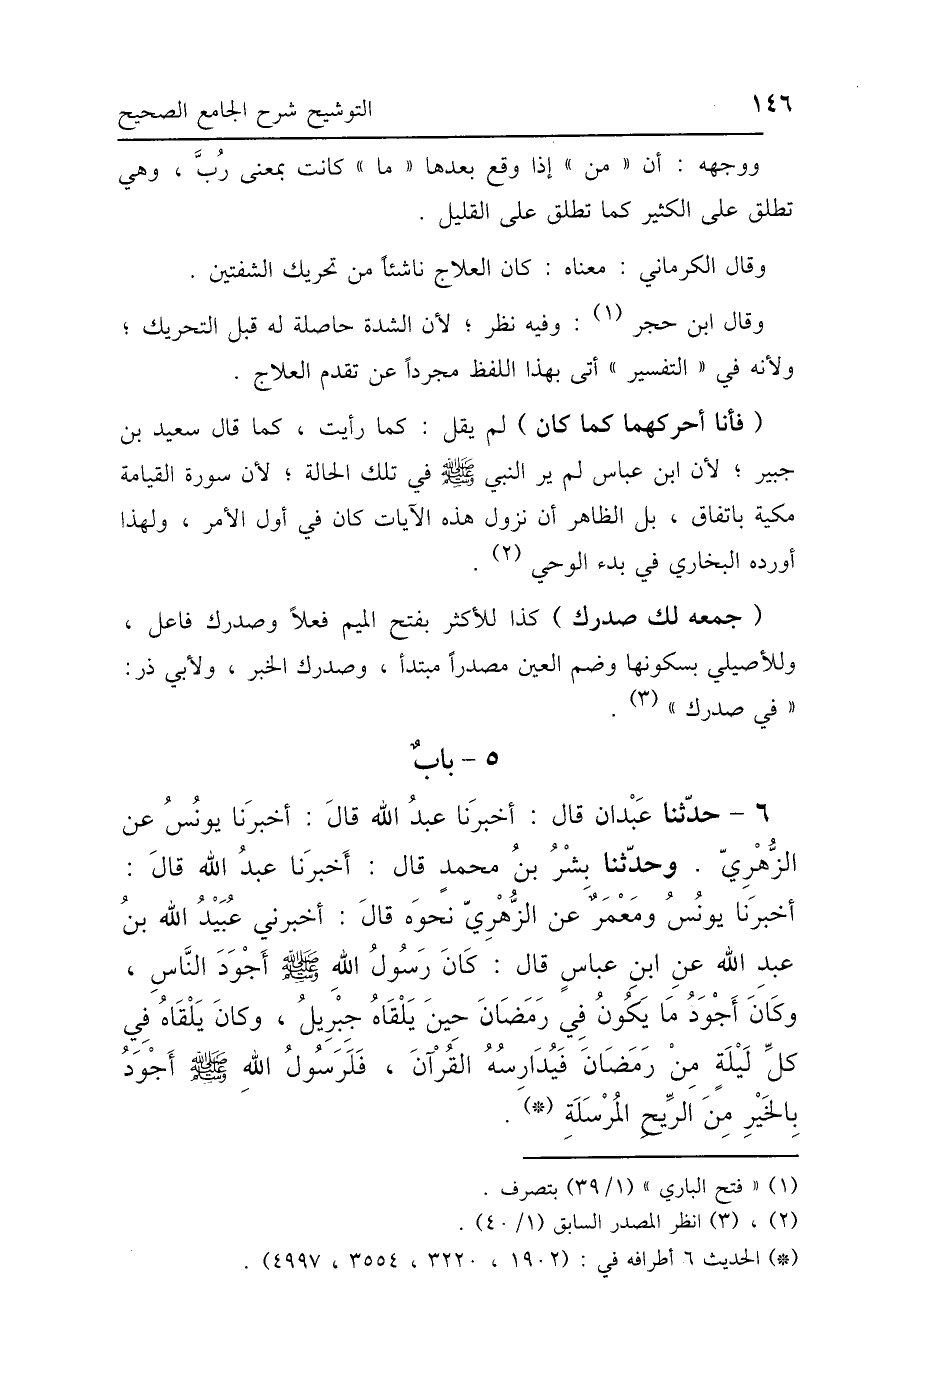 ١٤٦ التوشيح شرح الجامع الصحيح
ووجهه : أن « من » إذا وقع بعدها « ما » كانت بمعنى رُبَّ ، وهي
تطلق على الكثير كما تطلق على القليل .
وقال الكرماني : معناه : كان العلاج ناشئاً من تحريك الشفتين .
وقال ابن حجر (١) : وفيه نظر ؛ لأن الشدة حاصلة له قبل التحريك ؛
ولأنه في « التفسير » أتى بهذا اللفظ مجرداً عن تقدم العلاج .
( فأنا أحركهما كما كان ) لم يقل : كما رأيت ، كما قال سعيد بن
جبير ؛ لأن ابن عباس لم ير النبي ﷺ في تلك الحالة ؛ لأن سورة القيامة
مكية باتفاق ، بل الظاهر أن نزول هذه الآيات كان في أول الأمر ، ولهذا
أورده البخاري في بدء الوحي (٢) .
( جمعه لك صدرك ) كذا للأكثر بفتح الميم فعلاً وصدرك فاعل ،
وللأصيلي بسكونها وضم العين مصدراً مبتدأ ، وصدرك الخبر ، ولأبي ذر :
« في صدرك » (٣) .
٥ - بابٌ
٦ - حدّثنا عَبْدان قال : أخبرَنا عبدُ الله قالَ : أخبرَنا يونُسُ عن
الزُّهْرِيّ . وحدّثنا بِشْرُ بنُ محمدٍ قال : أَخبرَنا عبدُ الله قالَ :
أخبرَنا يونُسُ ومَعْمَرٌ عن الزُّهْرِيّ نحوَه قالَ : أخبرني عُبَيْدُ الله بنُ
عبدِ الله عن ابنِ عباسٍ قال : كَانَ رَسُولُ اللهِ ﷺ أَجْوَدَ النَّاسِ ،
وكَانَ أَجْوَدُ مَا يَكُونُ فِي رَمَضَانَ حِينَ يَلْقَاهُ جِبْرِيلُ ، وكانَ يَلْقَاهُ فِي
كلِّ لَيْلَةٍ مِنْ رَمَضَانَ فَيُدَارِسُهُ القُرْآنَ ، فَلَرَسُولُ اللهِ ﷺ أَجْوَدُ
بِالخَيْرِ مِنَ الرِّيحِ المُرْسَلَةِ (*) .
(١) « فتح الباري » (٣٩/١) بتصرف .
(٢) ، (٣) انظر المصدر السابق (٤٠/١) .
(*) الحديث ٦ أطرافه في : (١٩٠٢ ، ٣٢٢٠ ، ٣٥٥٤ ، ٤٩٩٧) .